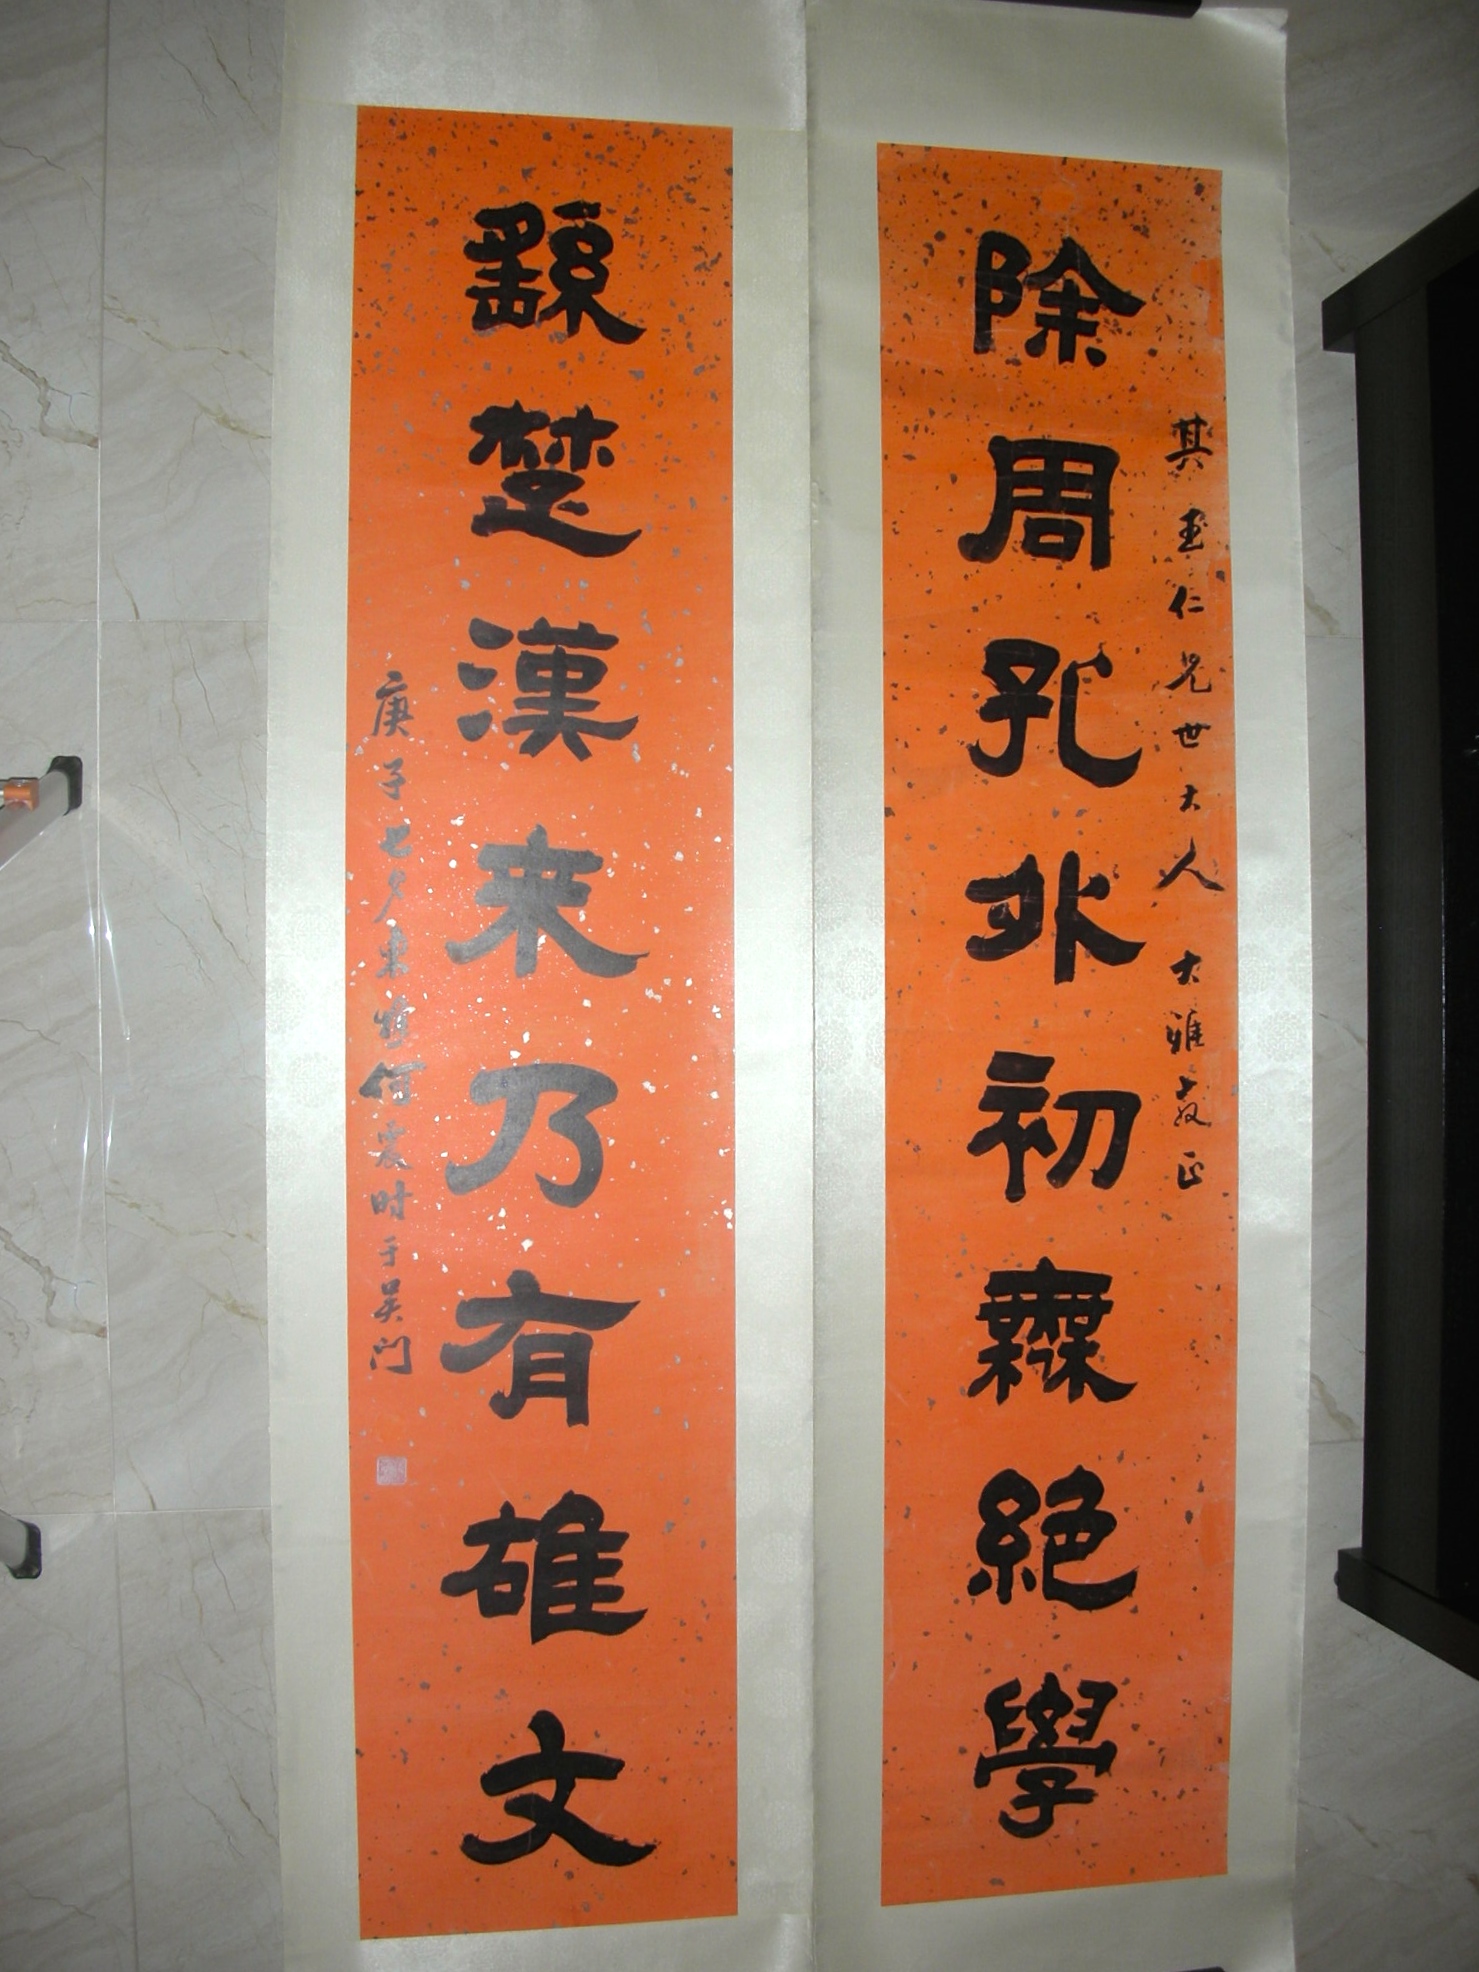 其玉仁兄世大人 大雅教正
除周孔外初無絕學
繇楚漢来乃有雄文
庚子七夕来 何震时于吴门